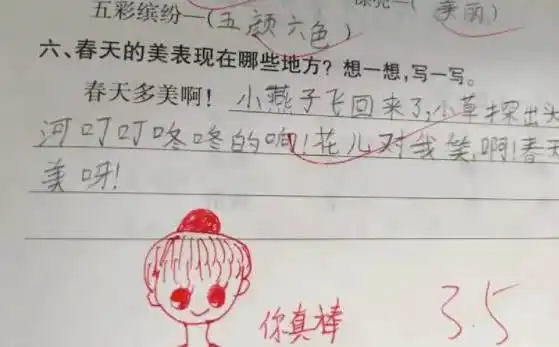 五彩缤纷—(五颜六色) 漂亮—(美丽)
六、春天的美表现在哪些地方？想一想,写一写。
春天多美啊！小燕子飞回来了,小草探出头
河叮叮咚咚的响!花儿对我笑,啊!春天
美呀!
你真棒 3.5